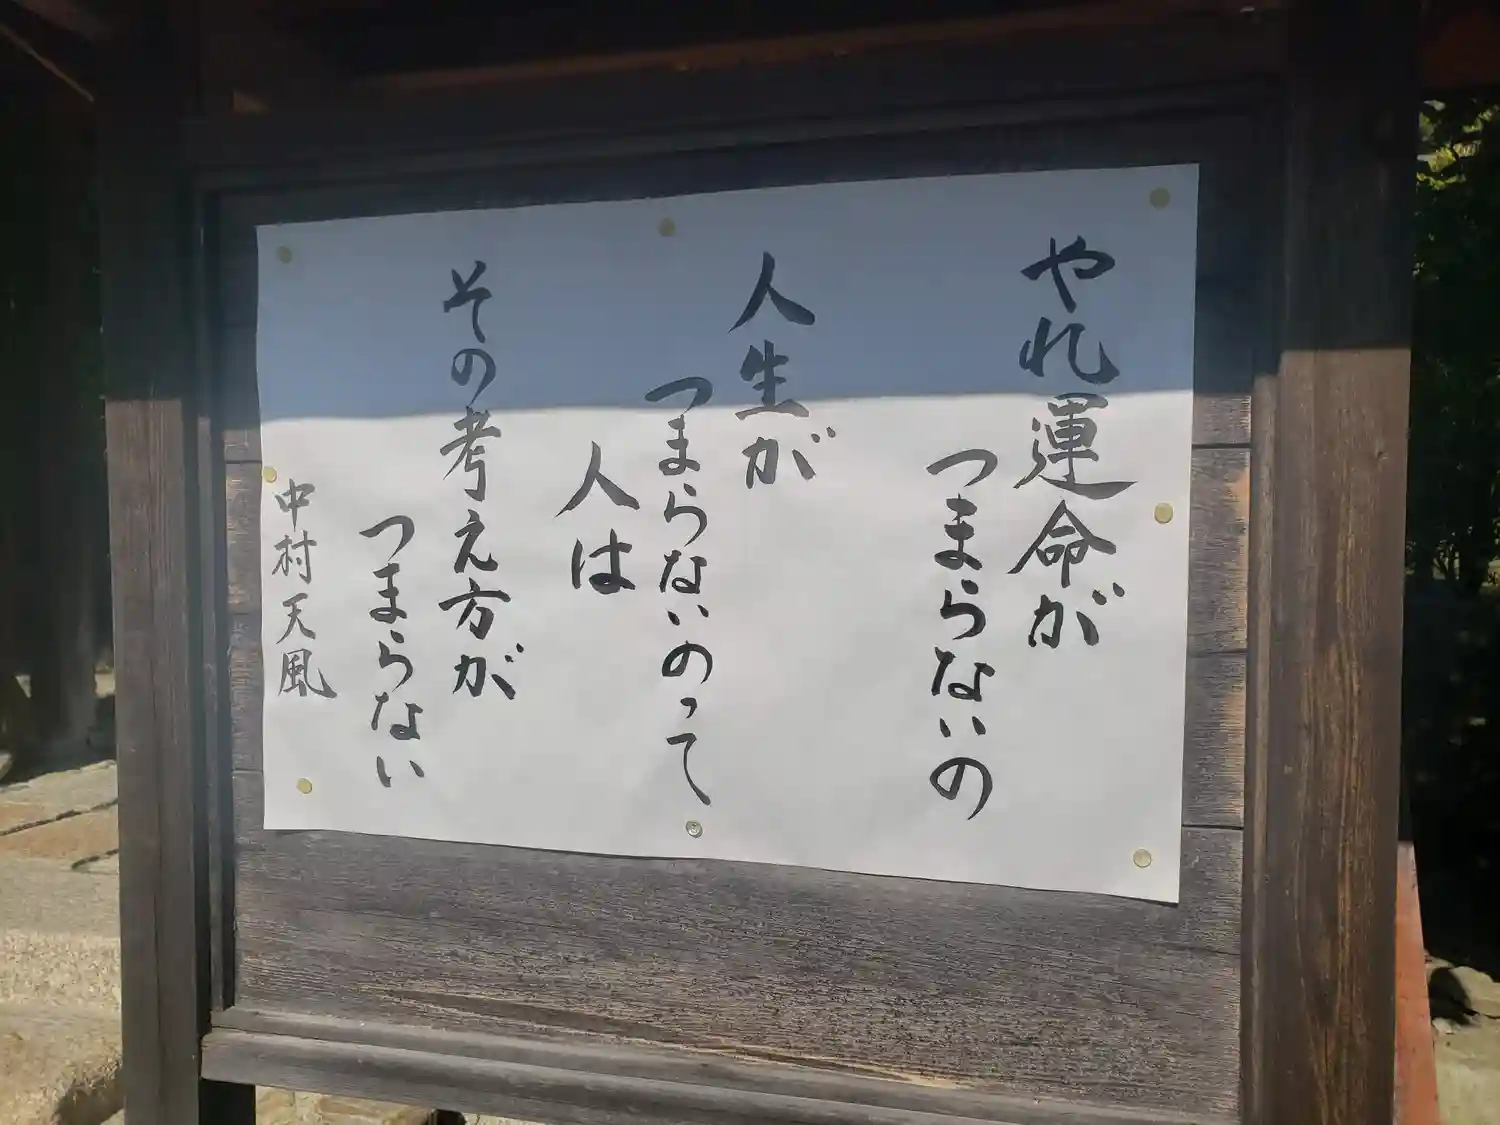 やれ運命が
つまらないの
人生が
つまらないのって
人は
その考え方が
つまらない
中村天風